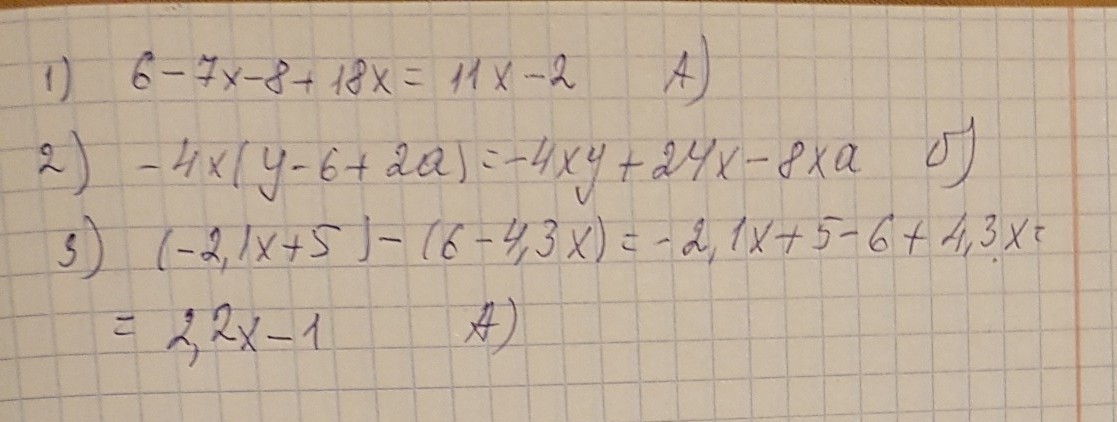 1) 6-7x-8+18x=11x-2 А)
2) -4x(y-6+2a)=-4xy+24x-8xa б)
3) (-2,1x+5)-(6-4,3x)=-2,1x+5-6+4,3x=
= 2,2x-1 А)